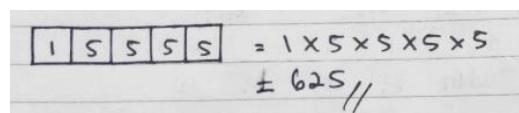 1 5 5 5 5 = 1 × 5 × 5 × 5 × 5
± 625 //